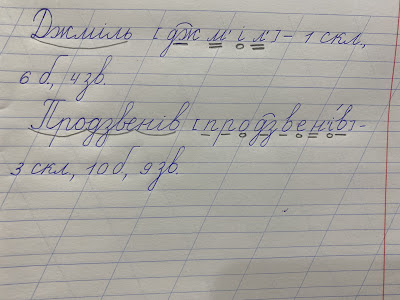 Джміль [джм'іл'] – 1 скл.,
6 б, 4 зв.
Продзвенів [продзвен'íв] -
3 скл., 10 б, 9 зв.